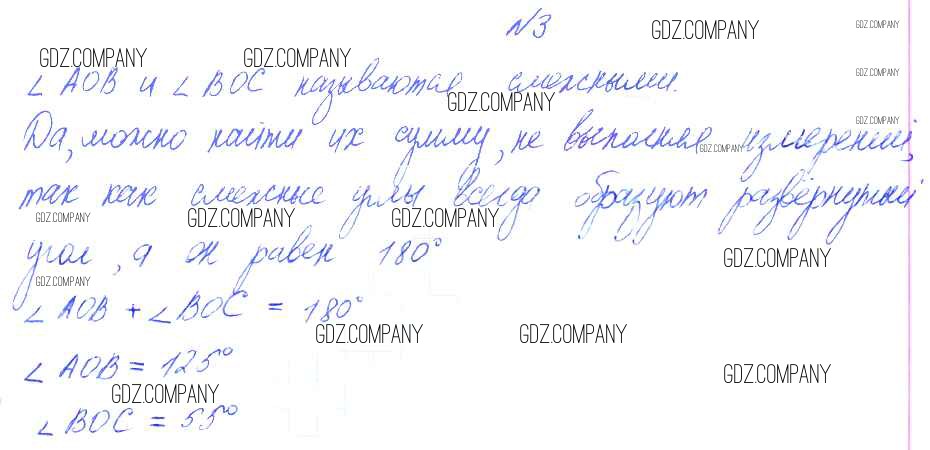 №3
GDZ.COMPANY GDZ.COMPANY
GDZ.COMPANY GDZ.COMPANY
∠ AOB и ∠ BOC называются смежными.
GDZ.COMPANY
GDZ.COMPANY
Да, можно найти их сумму, не выполняя измерений,
GDZ.COMPANY
GDZ.COMPANY
так как смежные углы всегда образуют развёрнутый
GDZ.COMPANY GDZ.COMPANY GDZ.COMPANY
угол, а он равен 180°
GDZ.COMPANY
GDZ.COMPANY
∠ AOB + ∠ BOC = 180°
GDZ.COMPANY GDZ.COMPANY
∠ AOB = 125°
GDZ.COMPANY
GDZ.COMPANY
∠ BOC = 55°